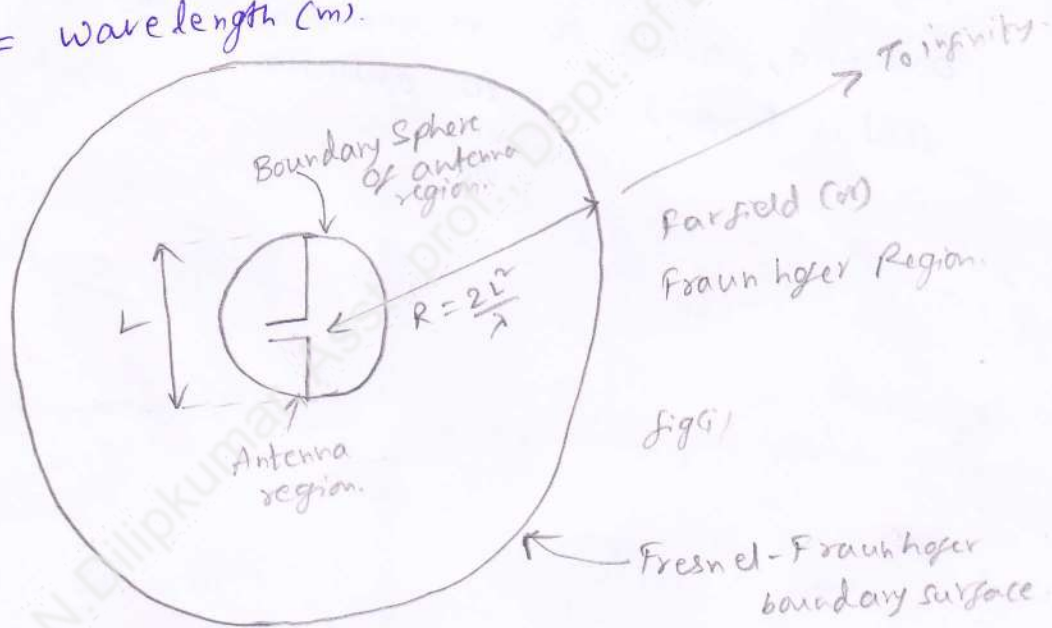 = wavelength (m).
To infinity.
Boundary Sphere
of antenna
region.
L
R = 2L²/λ
Farfield (or)
Fraunhofer Region.
fig(i)
Antenna
region.
Fresnel-Fraunhofer
boundary surface
N.Dilipkumar Asst.prof., Dept. of